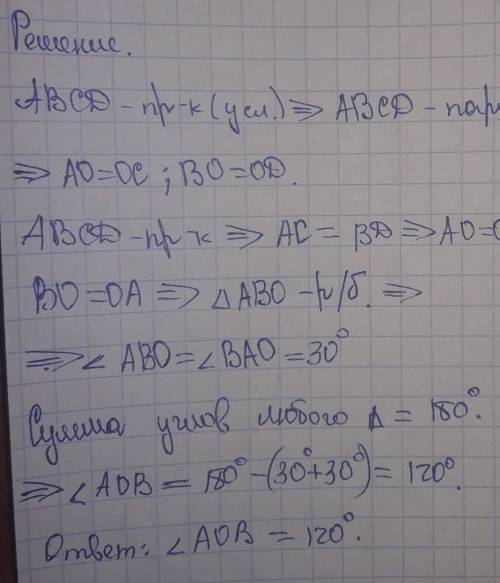 Решение.
ABCD - пр-к (усл.) ⇒ ABCD - пар
⇒ AO=OC ; BO=OD.
ABCD - пр-к ⇒ AC = BD ⇒ AO=
BO=OA ⇒ △ABO - р/б. ⇒
⇒ ∠ ABO = ∠BAO = 30°
Сумма углов любого Δ = 180°.
⇒ ∠AOB = 180° - (30°+30°) = 120°.
Ответ: ∠AOB = 120°.